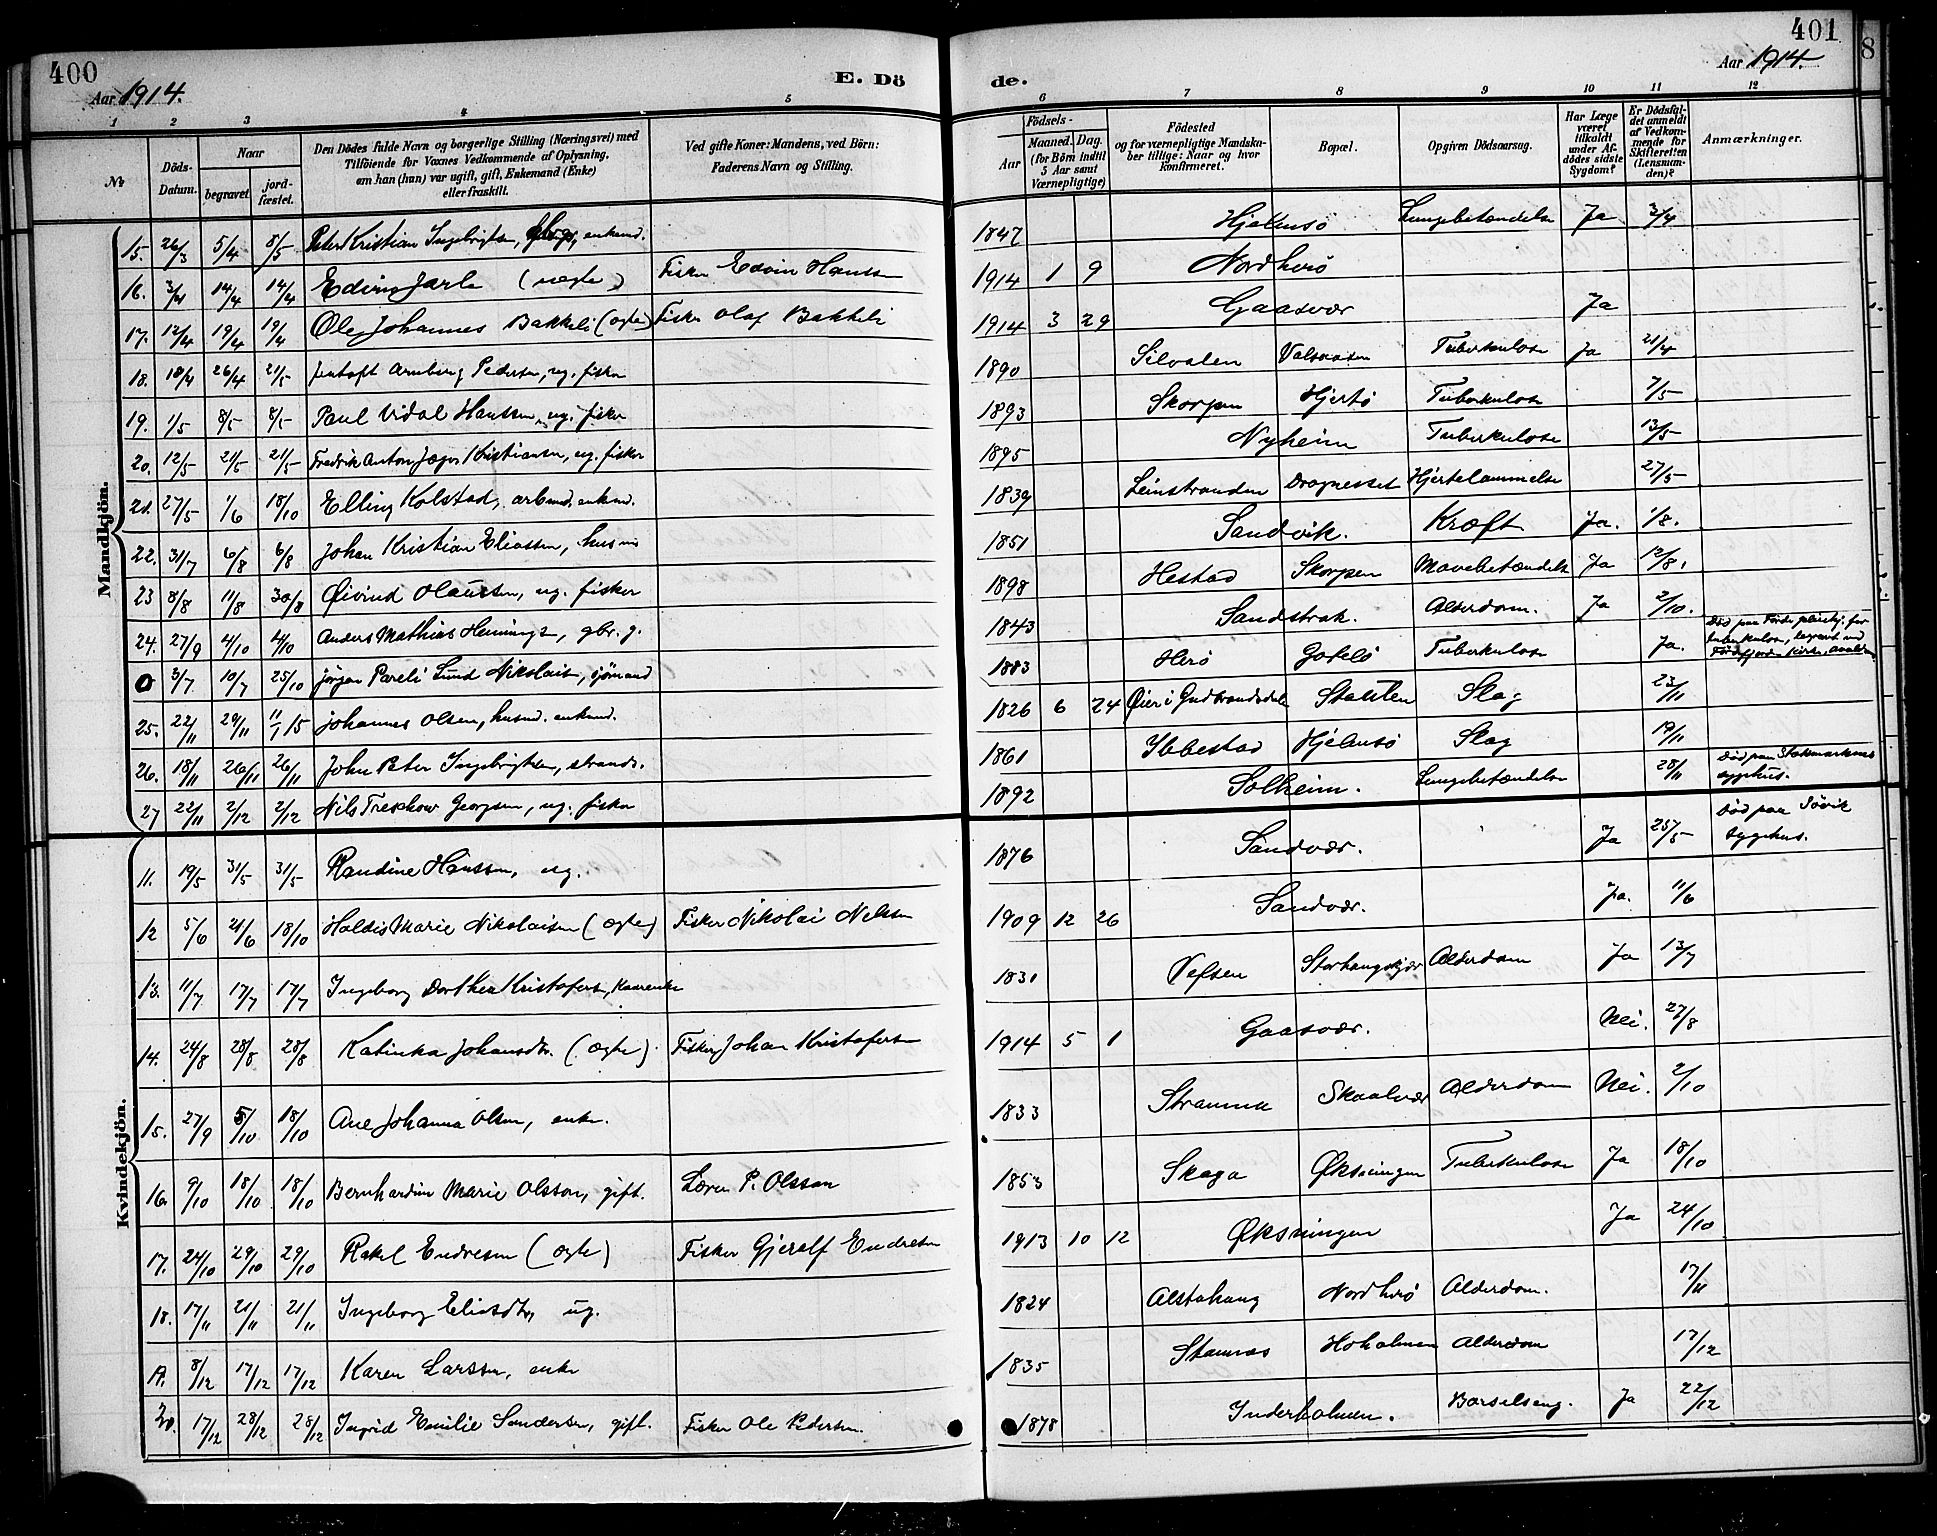 400
Aar 1914.
E. Dö
de.
401
Aar 1914.
8
1 2 3 4 5 6 7 8 9 10 11 12
No
Döds-Datum.
Naar
begravet
jord-fæstet.
Den Dödes fulde Navn og borgerlige Stilling (Næringsvei) med
Tilföiende for Voxnes Vedkommende af Oplysning,
om han (hun) var ugift, gift, Enkemand (Enke)
eller fraskilt.
Ved gifte Koner: Mandens, ved Börn:
Faderens Navn og Stilling.
Födsels-
Aar
Maaned.
Dag.
(for Börn indtil
5 Aar samt
Værnepligtige)
Födested
og for værnepligtige Mandska-
ber tillige: Naar og hvor
konfirmeret.
Bopæl.
Opgiven Dödsaarsag.
Har Læge
været
tilkaldt
under Af-
dödes sidste
Sygdom?
Er Dödsfal-
det anmeldt
af Vedkom-
mende for
Skifteretten
(Lensman-
den)?
Anmærkninger.
Mandkjön.
15. 26/3 5/4 8/5 Peter Kristian Ingebrigtsen, enkemd. 1847 Hjelmsö Lungebetændelse Ja 3/4
16. 3/4 14/4 14/4 Edvin Jarle (uegte) Fisker Edvin Hanssen 1914 1 9 Nordherö
17. 12/4 19/4 19/4 Ole Johannes Bakkeli (ægte) Fisker Olaf Bakkeli 1914 3 29 Gaasvær Ja
18. 18/4 26/4 21/5 Jentoft Arnberg Pedersen, ug. fisker 1890 Silvalen Valsaasen Tuberkulose Ja 21/4
19. 1/5 8/5 8/5 Paul Vidal Hanssen, ug. fisker 1893 Skorpen Hjertö Tuberkulose 7/5
20. 12/5 21/5 21/5 Fredrik Anton Jæger Kristiansen, ug. fisker 1895 Nyheim Tuberkulose 13/5
21. 27/5 1/6 18/10 Elling Kolstad, arbmd. enkmd. 1839 Leinstranden Dragnesset Hjertelammelse 27/5
22. 31/7 6/8 6/8 Johan Kristian Eliassen, husm 1851 Sandvik. Kræft Ja. 1/8.
23 8/8 11/8 30/8 Øivind Olaussen, ug. fisker 1898 Hestad Skorpen Mavebetændelse Ja 12/8.
24. 27/9 4/10 4/10 Anders Mathias Hemmings, gbr. g. 1843 Sandstrak. Alderdom. Ja 2/10.
0 3/7 10/7 25/10 Jörgen Pareli Lund Nikolais, sjömand 1883 Herö Gotslö Tuberkulose Ja. Död paa Förde pleiehj. for tuberkulose, begravet ved Fördefjorden kirke,
25. 22/11 29/11 11/1 15 Johannes Olsen, husmd. enkemd. 1826 6 24 Øier i Gudbrandsdalen Stautlen Slag 23/11
26. 18/11 26/11 26/11 John Peter Ingebrigtsen, strands. 1861 Ibbestad Hjelmsö Slag 19/11
27 22/11 2/12 2/12 Nils Treschow Georgsen, ug. fisker 1892 Solheim. Lungebetændelse 28/11 Död paa Stokmarknes sygehus.
Kvindekjön.
11. 19/5 31/5 31/5 Randine Hanssen, ug. 1876 Sandvær. Ja 25/5 Död paa Sövik sygehus.
12 5/6 21/6 18/10 Haldis Marie Nikolaisen (ægte) Fisker Nikolai Nilsen 1909 12 26 Sandvær. Ja. 11/6
13. 11/7 17/7 17/7 Ingeborg Dorthea Kristofers, kaarenke 1831 Vefsen Alderdom Ja 13/7
14. 24/8 28/8 28/8 Katinka Johansdtr. (ægte). Fisker Johan Kristofersen 1914 5 1 Gaasvær. Nei. 27/8
15. 27/9 5/10 18/10 Ane Johanna Olsen, enke. 1833 Stramna Skaalvær Alderdom Nei. 2/10
16. 9/10 18/10 18/10 Bernhardine Marie Olsson, gift. Sören P. Olsson 1853 Skaga Øksningen Tuberkulose Ja 18/10
17. 24/10 29/10 29/10 Rakel Endresen (ægte) Fisker Gjeralf Endresen 1913 10 12 Øksningen Ja 24/10
18. 17/11 21/11 21/11 Ingeborg Eliasdtr. ug. 1824 Alstahaug Nordherö Alderdom. 17/11
19. 8/12 17/12 17/12 Karen Larssen, enke 1835 Stamnes Hoholmen Alderdom 17/12
20. 17/12 28/12 28/12 Ingrid Emilie Sandersen, gift. Fisker Ole Pedersen. 1878 Inderholmen. Barselseng. Ja 22/12